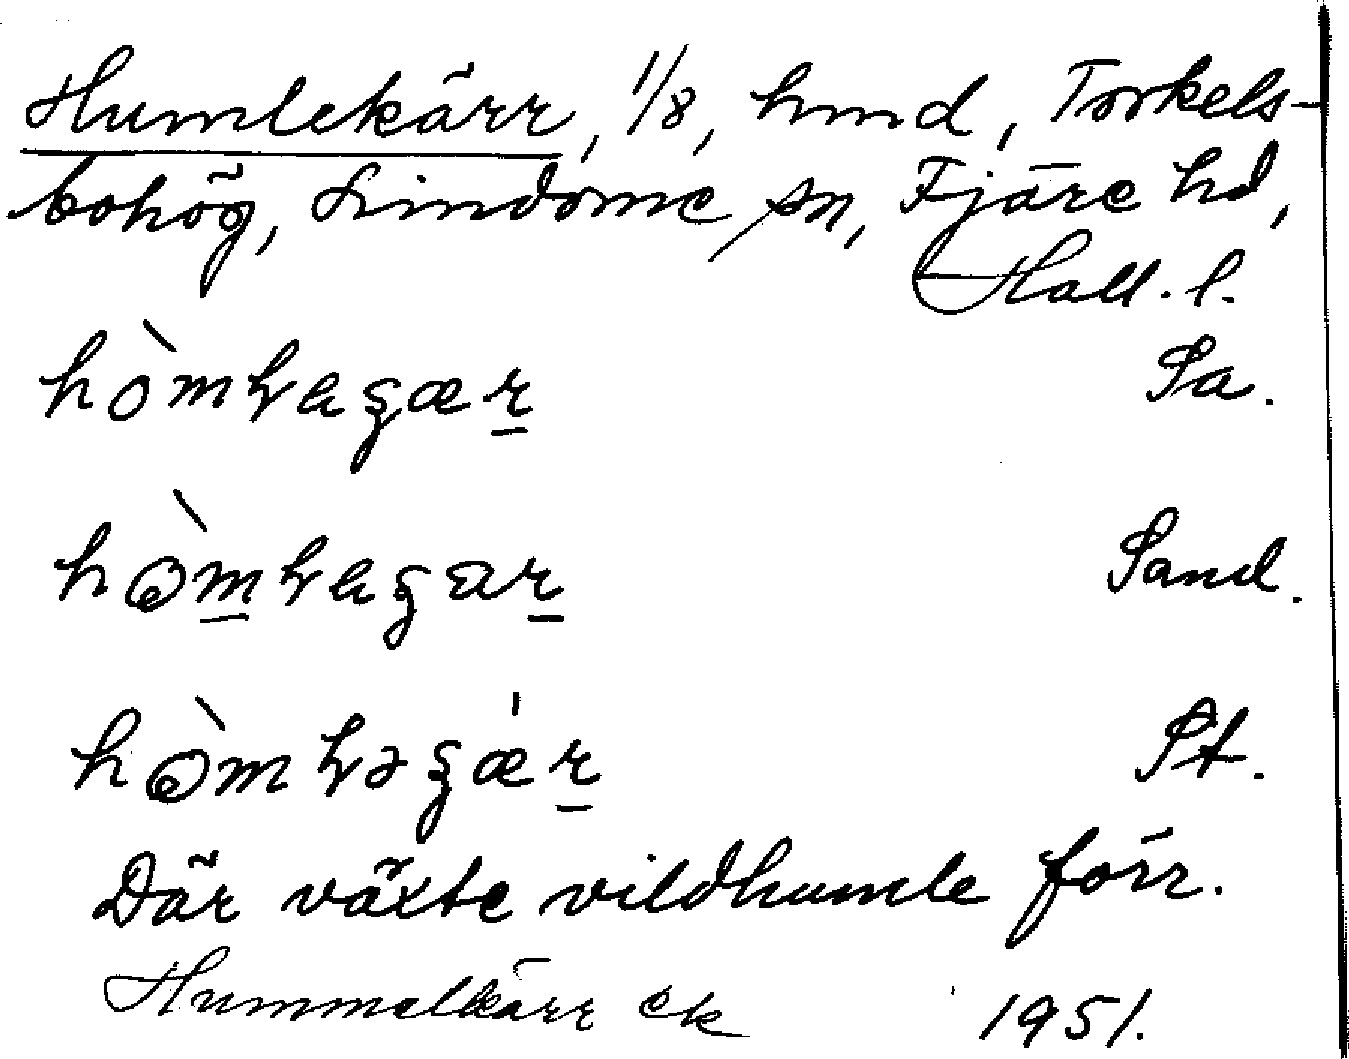 Humlekärr, 1/8, hmd, Torkels-
bohög, Lindome sn, Fjäre hd,
Hall. l.
Sa.
Sand.
St.
Där växte vildhumle förr.
Hummelkärr ek 1951.